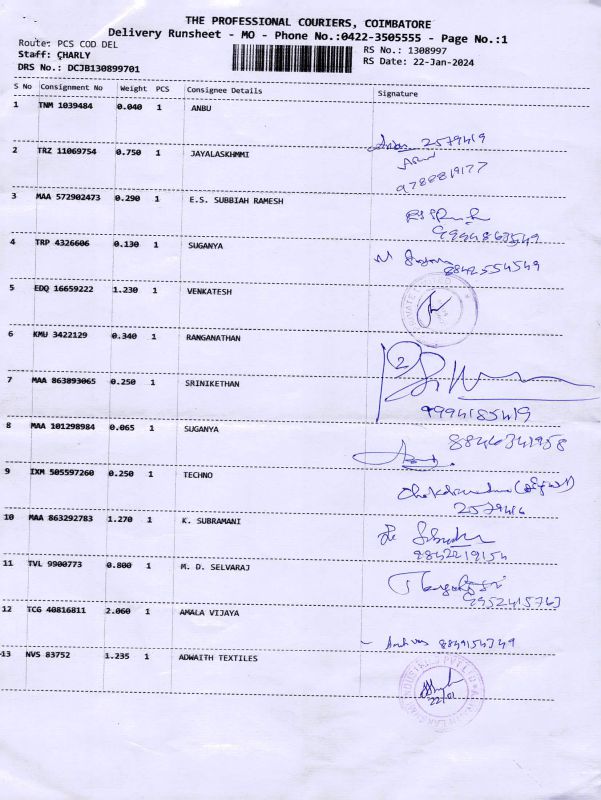 THE PROFESSIONAL COURIERS, COIMBATORE
Delivery Runsheet - MO - Phone No.:0422-3505555 - Page No.:1
Route: PCS COD DEL
RS No.: 1308997
Staff: CHARLY
RS Date: 22-Jan-2024
DRS No.: DCJB130899701
S No Consignment No Weight PCS Consignee Details Signature
1 TNM 1039484 0.040 1 ANBU
2579419
2 TRZ 11069754 0.750 1 JAYALASKHMMI
9788819177
3 MAA 572902473 0.290 1 E.S. SUBBIAH RAMESH
9994863549
4 TRP 4326606 0.130 1 SUGANYA
8842554549
5 EDQ 16659222 1.230 1 VENKATESH
6 KMU 3422129 0.340 1 RANGANATHAN
7 MAA 863893065 0.250 1 SRINIKETHAN
9994185419
8 MAA 101298984 0.065 1 SUGANYA
8846341958
9 IXM 505597260 0.250 1 TECHNO
2579416
10 MAA 863292783 1.270 1 K. SUBRAMANI
8842219154
11 TVL 9900773 0.800 1 M. D. SELVARAJ
9952415763
12 TCG 40816811 2.060 1 AMALA VIJAYA
8849154349
13 NVS 83752 1.235 1 ADWAITH TEXTILES
22/01